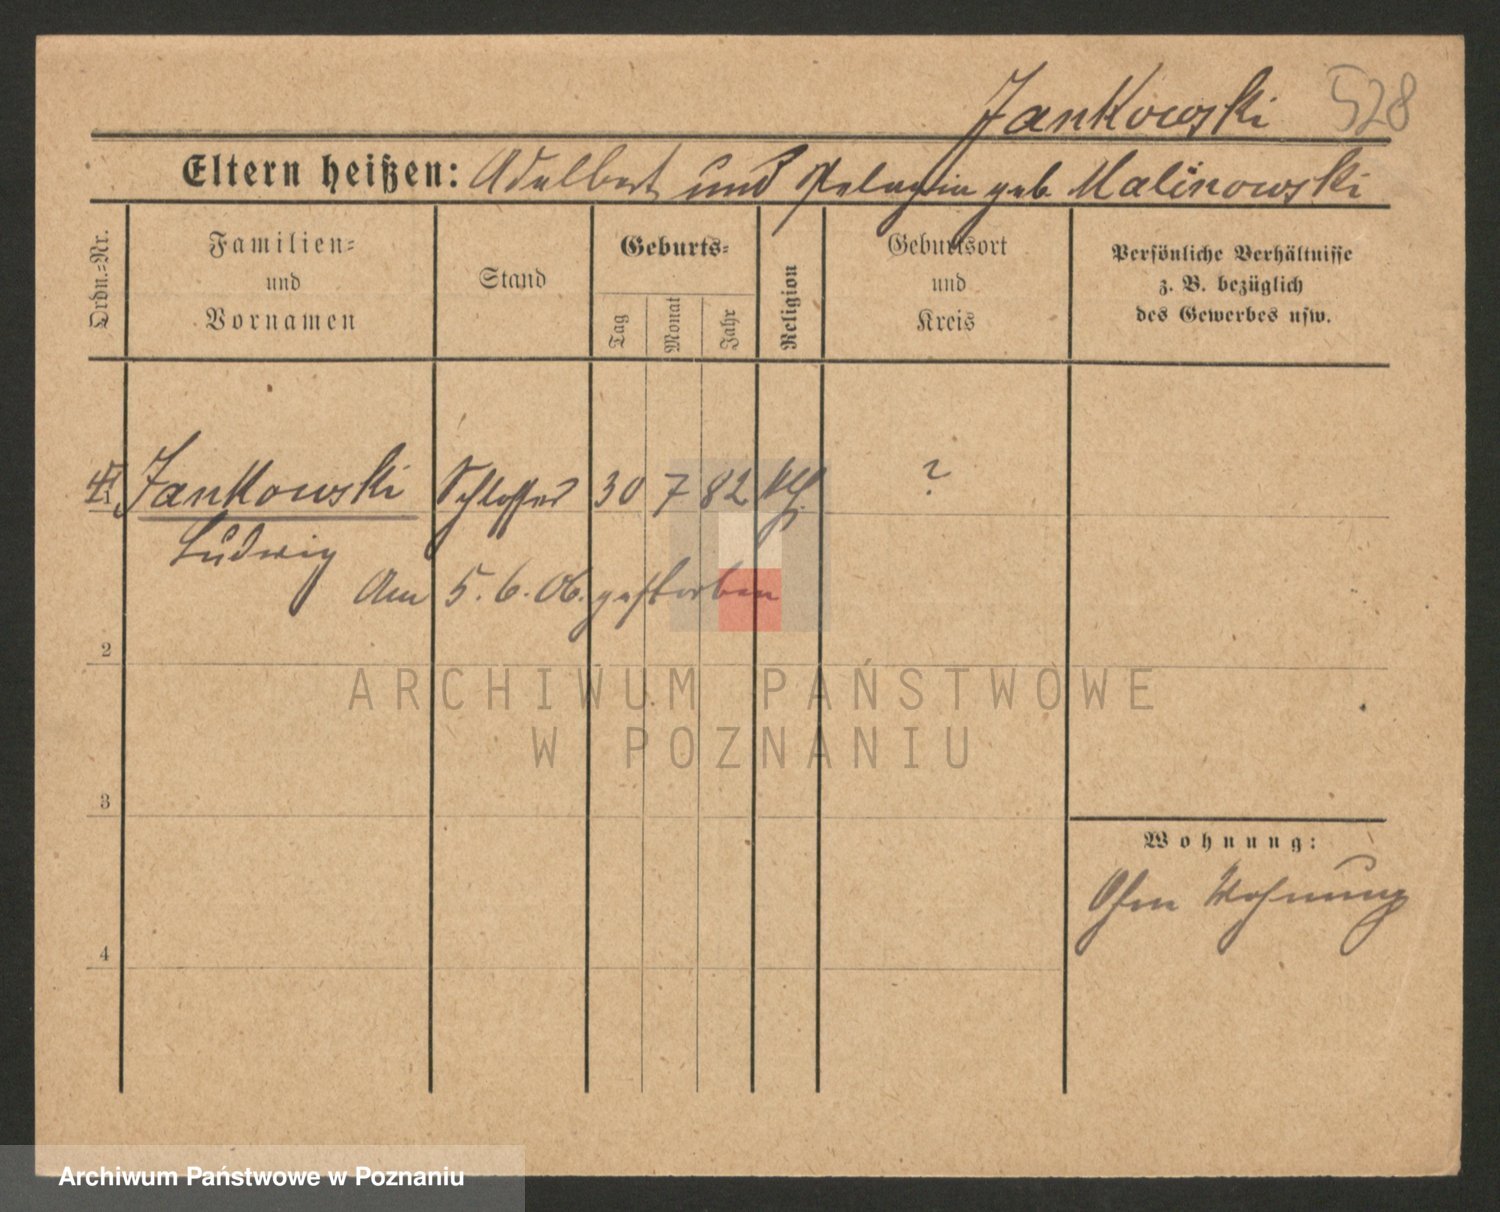 Jankowski 528
Eltern heißen: Adalbert und Pelagia geb. Malinowski
Ordn.=Nr.
Familien=
und
Vornamen
Stand
Geburts=
Tag
Monat
Jahr
Religion
Geburtsort
und
Kreis
Persönliche Verhältnisse
z. B. bezüglich
des Gewerbes usw.
Jankowski Schlosser 30 7 82 kth. ?
Ludwig
Am 5. 6. 06. gestorben
2
ARCHIWUM PAŃSTWOWE
W POZNANIU
3
Wohnung:
Ohne Wohnung
4
Archiwum Państwowe w Poznaniu